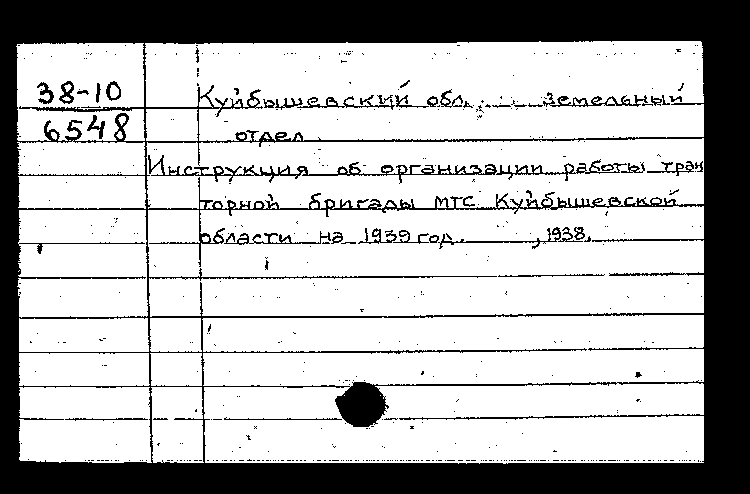 38-10
6548
Куйбышевский обл. земельный
отдел
Инструкция об организации работы трак
торной бригады мтс Куйбышевской
области на 1939 год. , 1938.